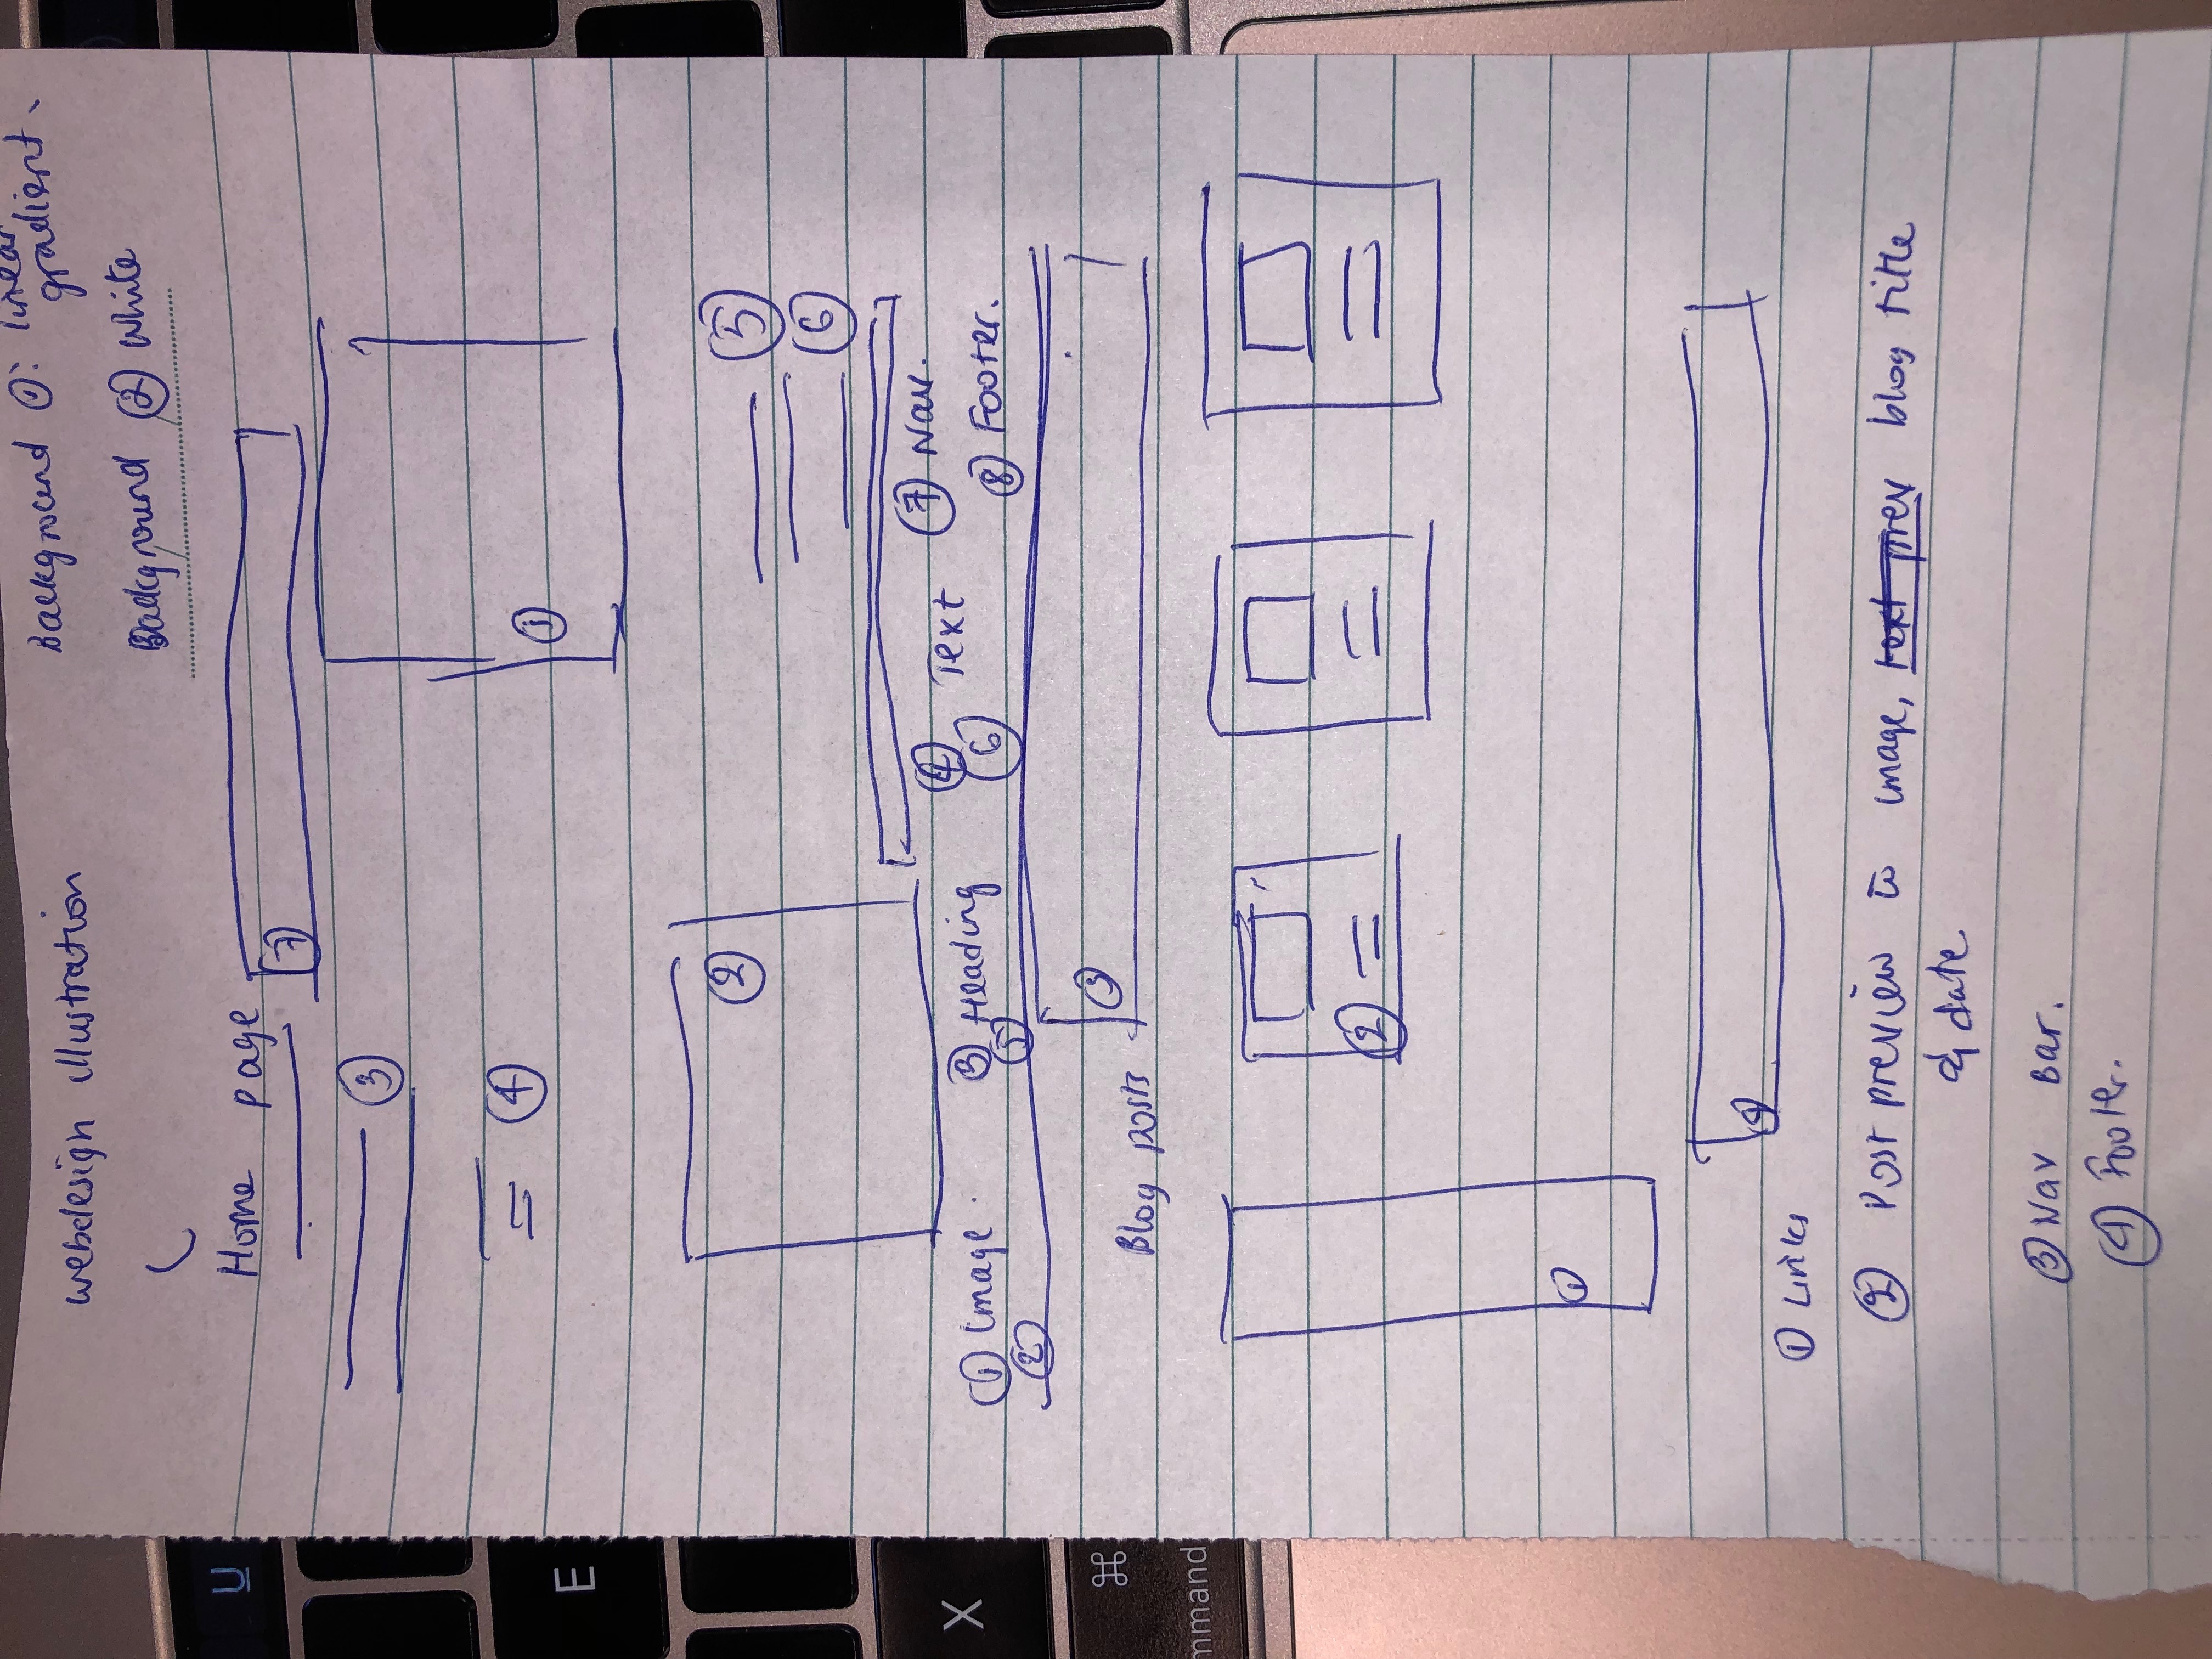 webdesign illustration
Background ①: linear
gradient.
Background ② White
Home page
⑦
③
④
①
②
⑤
⑥
① Image.
②
③ Heading
⑤
④ Text
⑥
⑦ Nav.
⑧ Footer.
③
Blog posts
②
①
④
① Links
② Post preview image, blog title
& date
③ Nav Bar.
④ Footer.
U
E
X
⌘
mmand